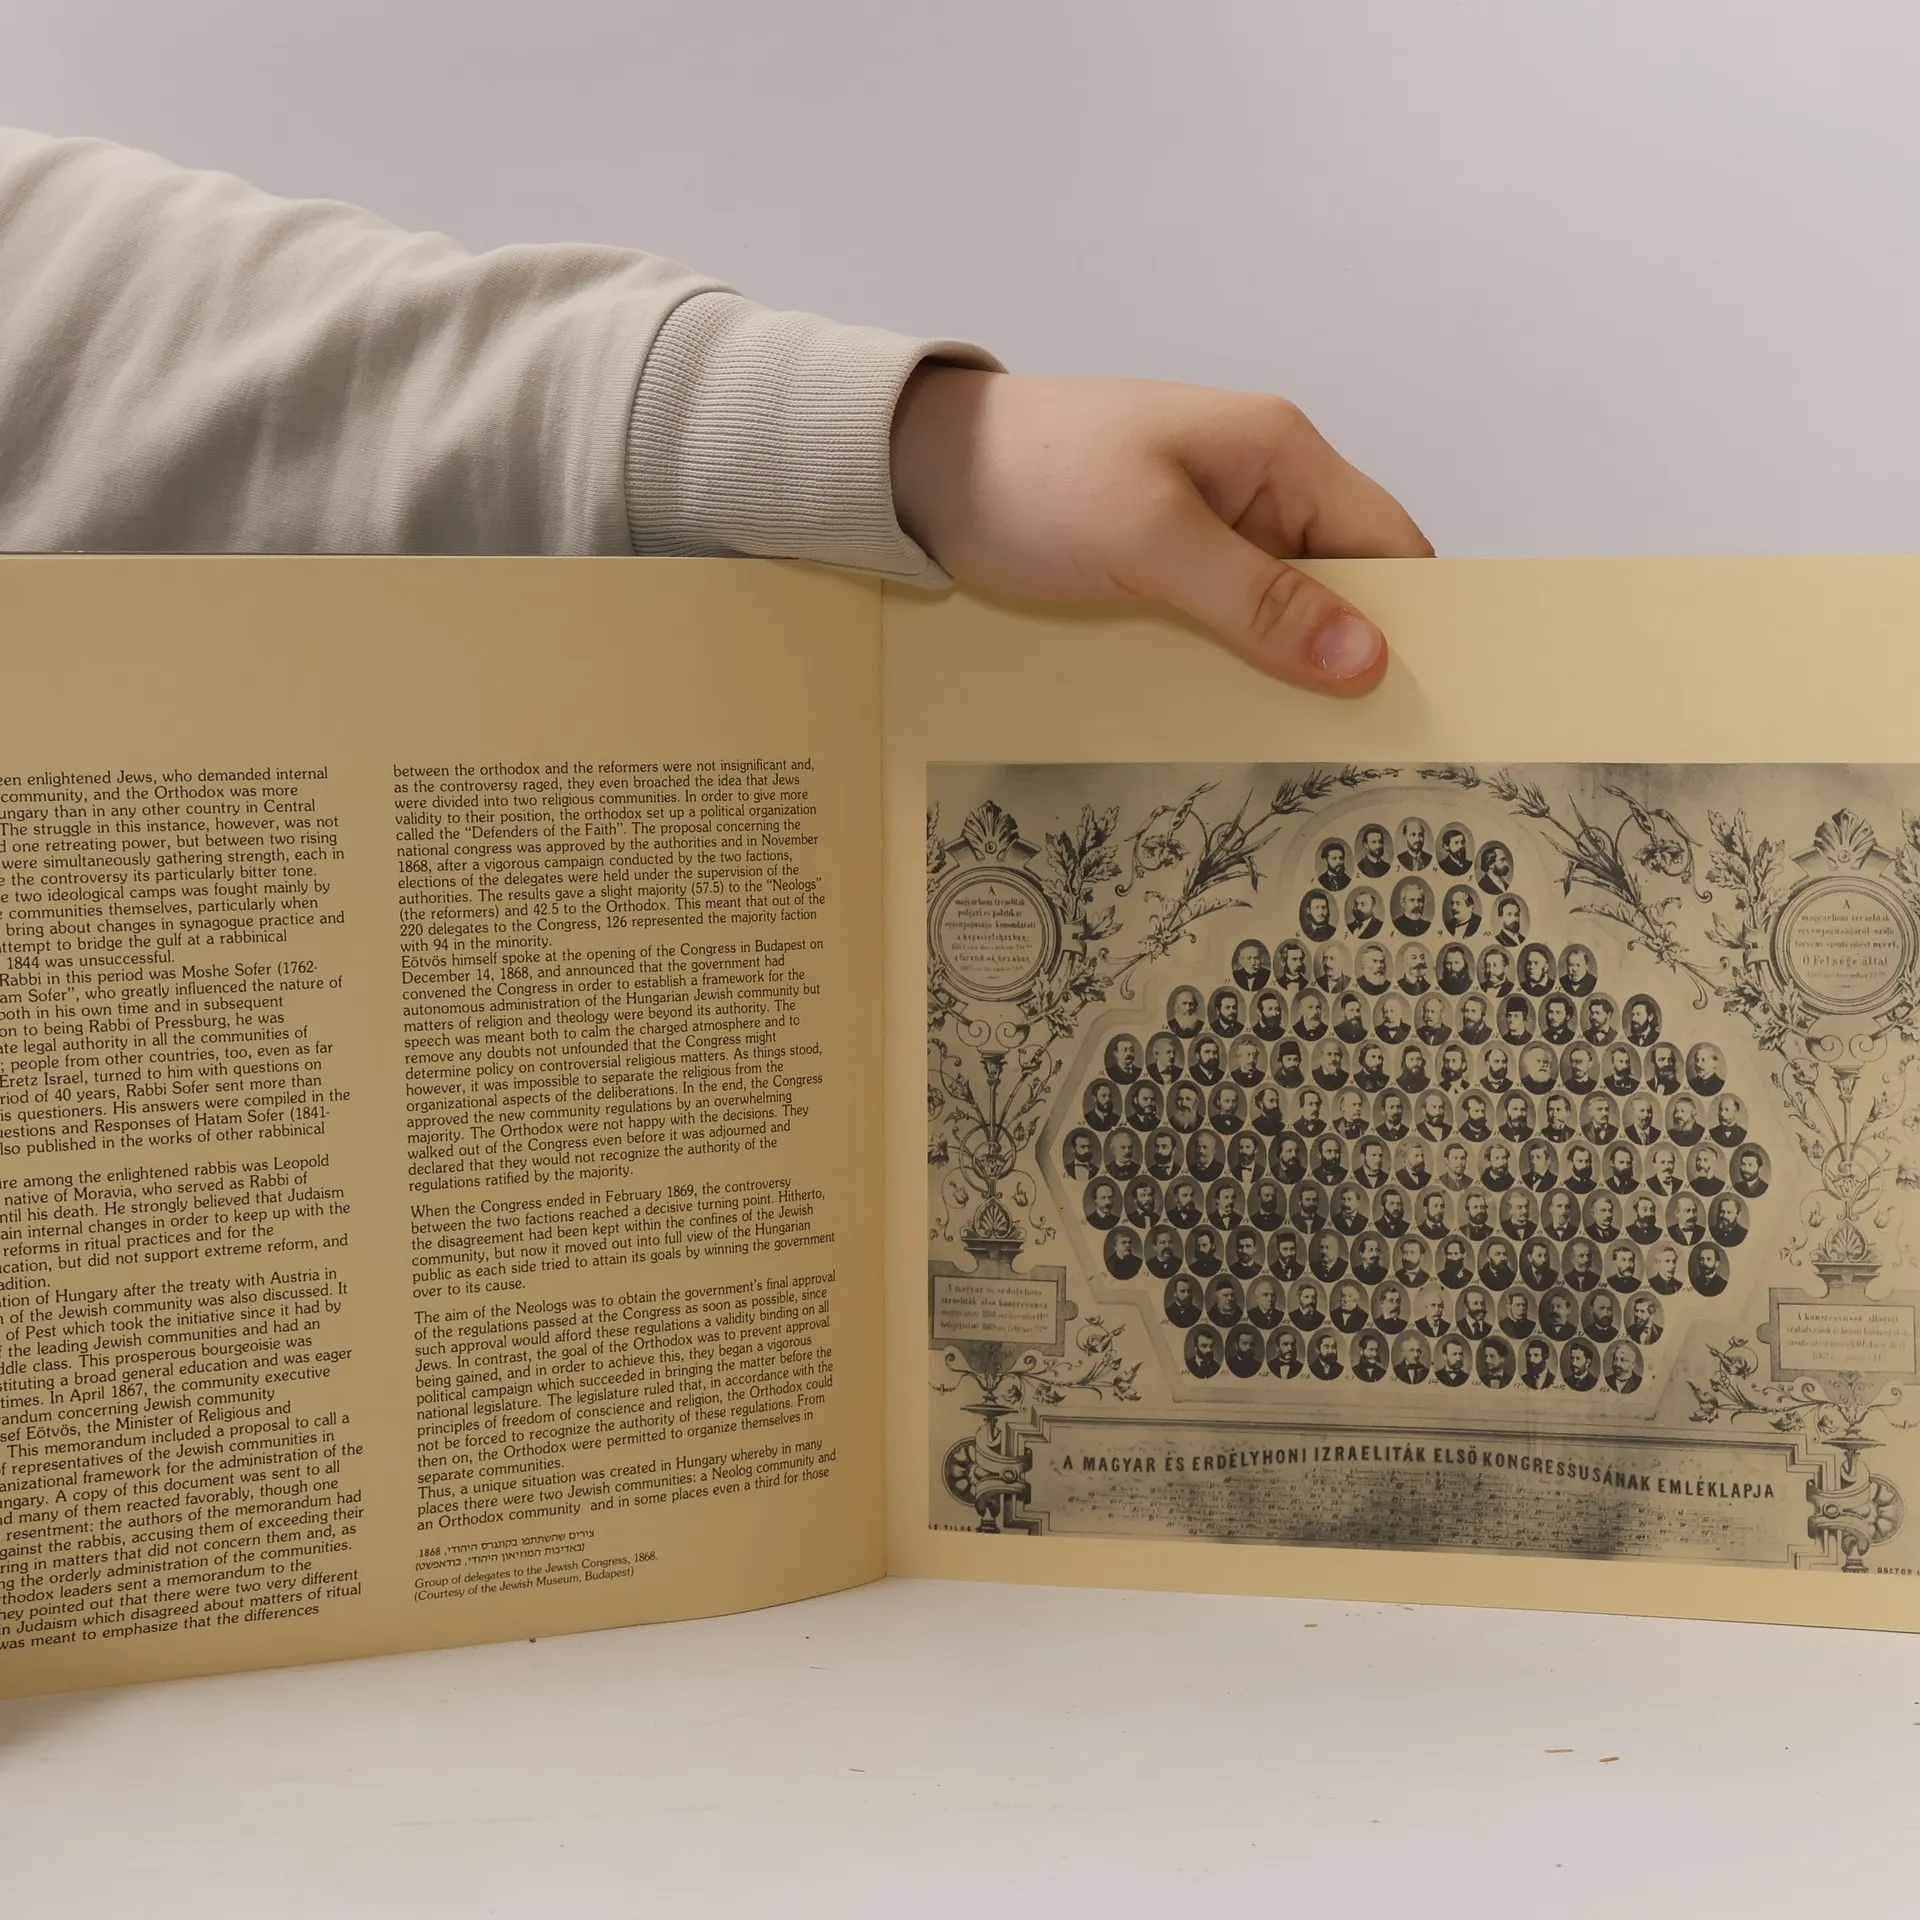 een enlightened Jews, who demanded internal
community, and the Orthodox was more
ungary than in any other country in Central
The struggle in this instance, however, was not
d one retreating power, but between two rising
were simultaneously gathering strength, each in
e the controversy its particularly bitter tone.
e two ideological camps was fought mainly by
communities themselves, particularly when
bring about changes in synagogue practice and
attempt to bridge the gulf at a rabbinical
1844 was unsuccessful.
Rabbi in this period was Moshe Sofer (1762-
am Sofer", who greatly influenced the nature of
both in his own time and in subsequent
on to being Rabbi of Pressburg, he was
ate legal authority in all the communities of
; people from other countries, too, even as far
Eretz Israel, turned to him with questions on
riod of 40 years, Rabbi Sofer sent more than
is questioners. His answers were compiled in the
uestions and Responses of Hatam Sofer (1841-
lso published in the works of other rabbinical
ure among the enlightened rabbis was Leopold
native of Moravia, who served as Rabbi of
ntil his death. He strongly believed that Judaism
ain internal changes in order to keep up with the
reforms in ritual practices and for the
ucation, but did not support extreme reform, and
adition.
tion of Hungary after the treaty with Austria in
n of the Jewish community was also discussed. It
of Pest which took the initiative since it had by
f the leading Jewish communities and had an
ddle class. This prosperous bourgeoisie was
stituting a broad general education and was eager
times. In April 1867, the community executive
randum concerning Jewish community
sef Eötvös, the Minister of Religious and
This memorandum included a proposal to call a
f representatives of the Jewish communities in
anizational framework for the administration of the
ungary. A copy of this document was sent to all
nd many of them reacted favorably, though one
resentment: the authors of the memorandum had
gainst the rabbis, accusing them of exceeding their
ring in matters that did not concern them and, as
ng the orderly administration of the communities.
rthodox leaders sent a memorandum to the
hey pointed out that there were two very different
in Judaism which disagreed about matters of ritual
was meant to emphasize that the differences
between the orthodox and the reformers were not insignificant and,
as the controversy raged, they even broached the idea that Jews
were divided into two religious communities. In order to give more
validity to their position, the orthodox set up a political organization
called the "Defenders of the Faith". The proposal concerning the
national congress was approved by the authorities and in November
1868, after a vigorous campaign conducted by the two factions,
elections of the delegates were held under the supervision of the
authorities. The results gave a slight majority (57.5) to the "Neologs"
(the reformers) and 42.5 to the Orthodox. This meant that out of the
220 delegates to the Congress, 126 represented the majority faction
with 94 in the minority.
Eötvös himself spoke at the opening of the Congress in Budapest on
December 14, 1868, and announced that the government had
convened the Congress in order to establish a framework for the
autonomous administration of the Hungarian Jewish community but
matters of religion and theology were beyond its authority. The
speech was meant both to calm the charged atmosphere and to
remove any doubts not unfounded that the Congress might
determine policy on controversial religious matters. As things stood,
however, it was impossible to separate the religious from the
organizational aspects of the deliberations. In the end, the Congress
approved the new community regulations by an overwhelming
majority. The Orthodox were not happy with the decisions. They
walked out of the Congress even before it was adjourned and
declared that they would not recognize the authority of the
regulations ratified by the majority.
When the Congress ended in February 1869, the controversy
between the two factions reached a decisive turning point. Hitherto,
the disagreement had been kept within the confines of the Jewish
community, but now it moved out into full view of the Hungarian
public as each side tried to attain its goals by winning the government
over to its cause.
The aim of the Neologs was to obtain the government's final approval
of the regulations passed at the Congress as soon as possible, since
such approval would afford these regulations a validity binding on all
Jews. In contrast, the goal of the Orthodox was to prevent approval
being gained, and in order to achieve this, they began a vigorous
political campaign which succeeded in bringing the matter before the
national legislature. The legislature ruled that, in accordance with the
principles of freedom of conscience and religion, the Orthodox could
not be forced to recognize the authority of these regulations. From
then on, the Orthodox were permitted to organize themselves in
separate communities.
Thus, a unique situation was created in Hungary whereby in many
places there were two Jewish communities: a Neolog community and
an Orthodox community and in some places even a third for those
צירים שהשתתפו בקונגרס היהודי, 1868.
(באדיבות המוזיאון היהודי, בודאפשט)
Group of delegates to the Jewish Congress, 1868.
(Courtesy of the Jewish Museum, Budapest)
A
magyarhoni izraeliták
polgári és politikai
egyenjogúsága kimondatott
a képviselőházban:
a főrendek házában
A
magyarhon izraeliták
egyenjogúságáról szóló
törvény szentesítést nyert.
Ő Felsége által
A magyar és erdélyhoni
izraeliták első kongressusa
A MAGYAR ÉS ERDÉLYHONI IZRAELITÁK ELSŐ KONGRESSUSÁNAK EMLÉKLAPJA
DOCTOR